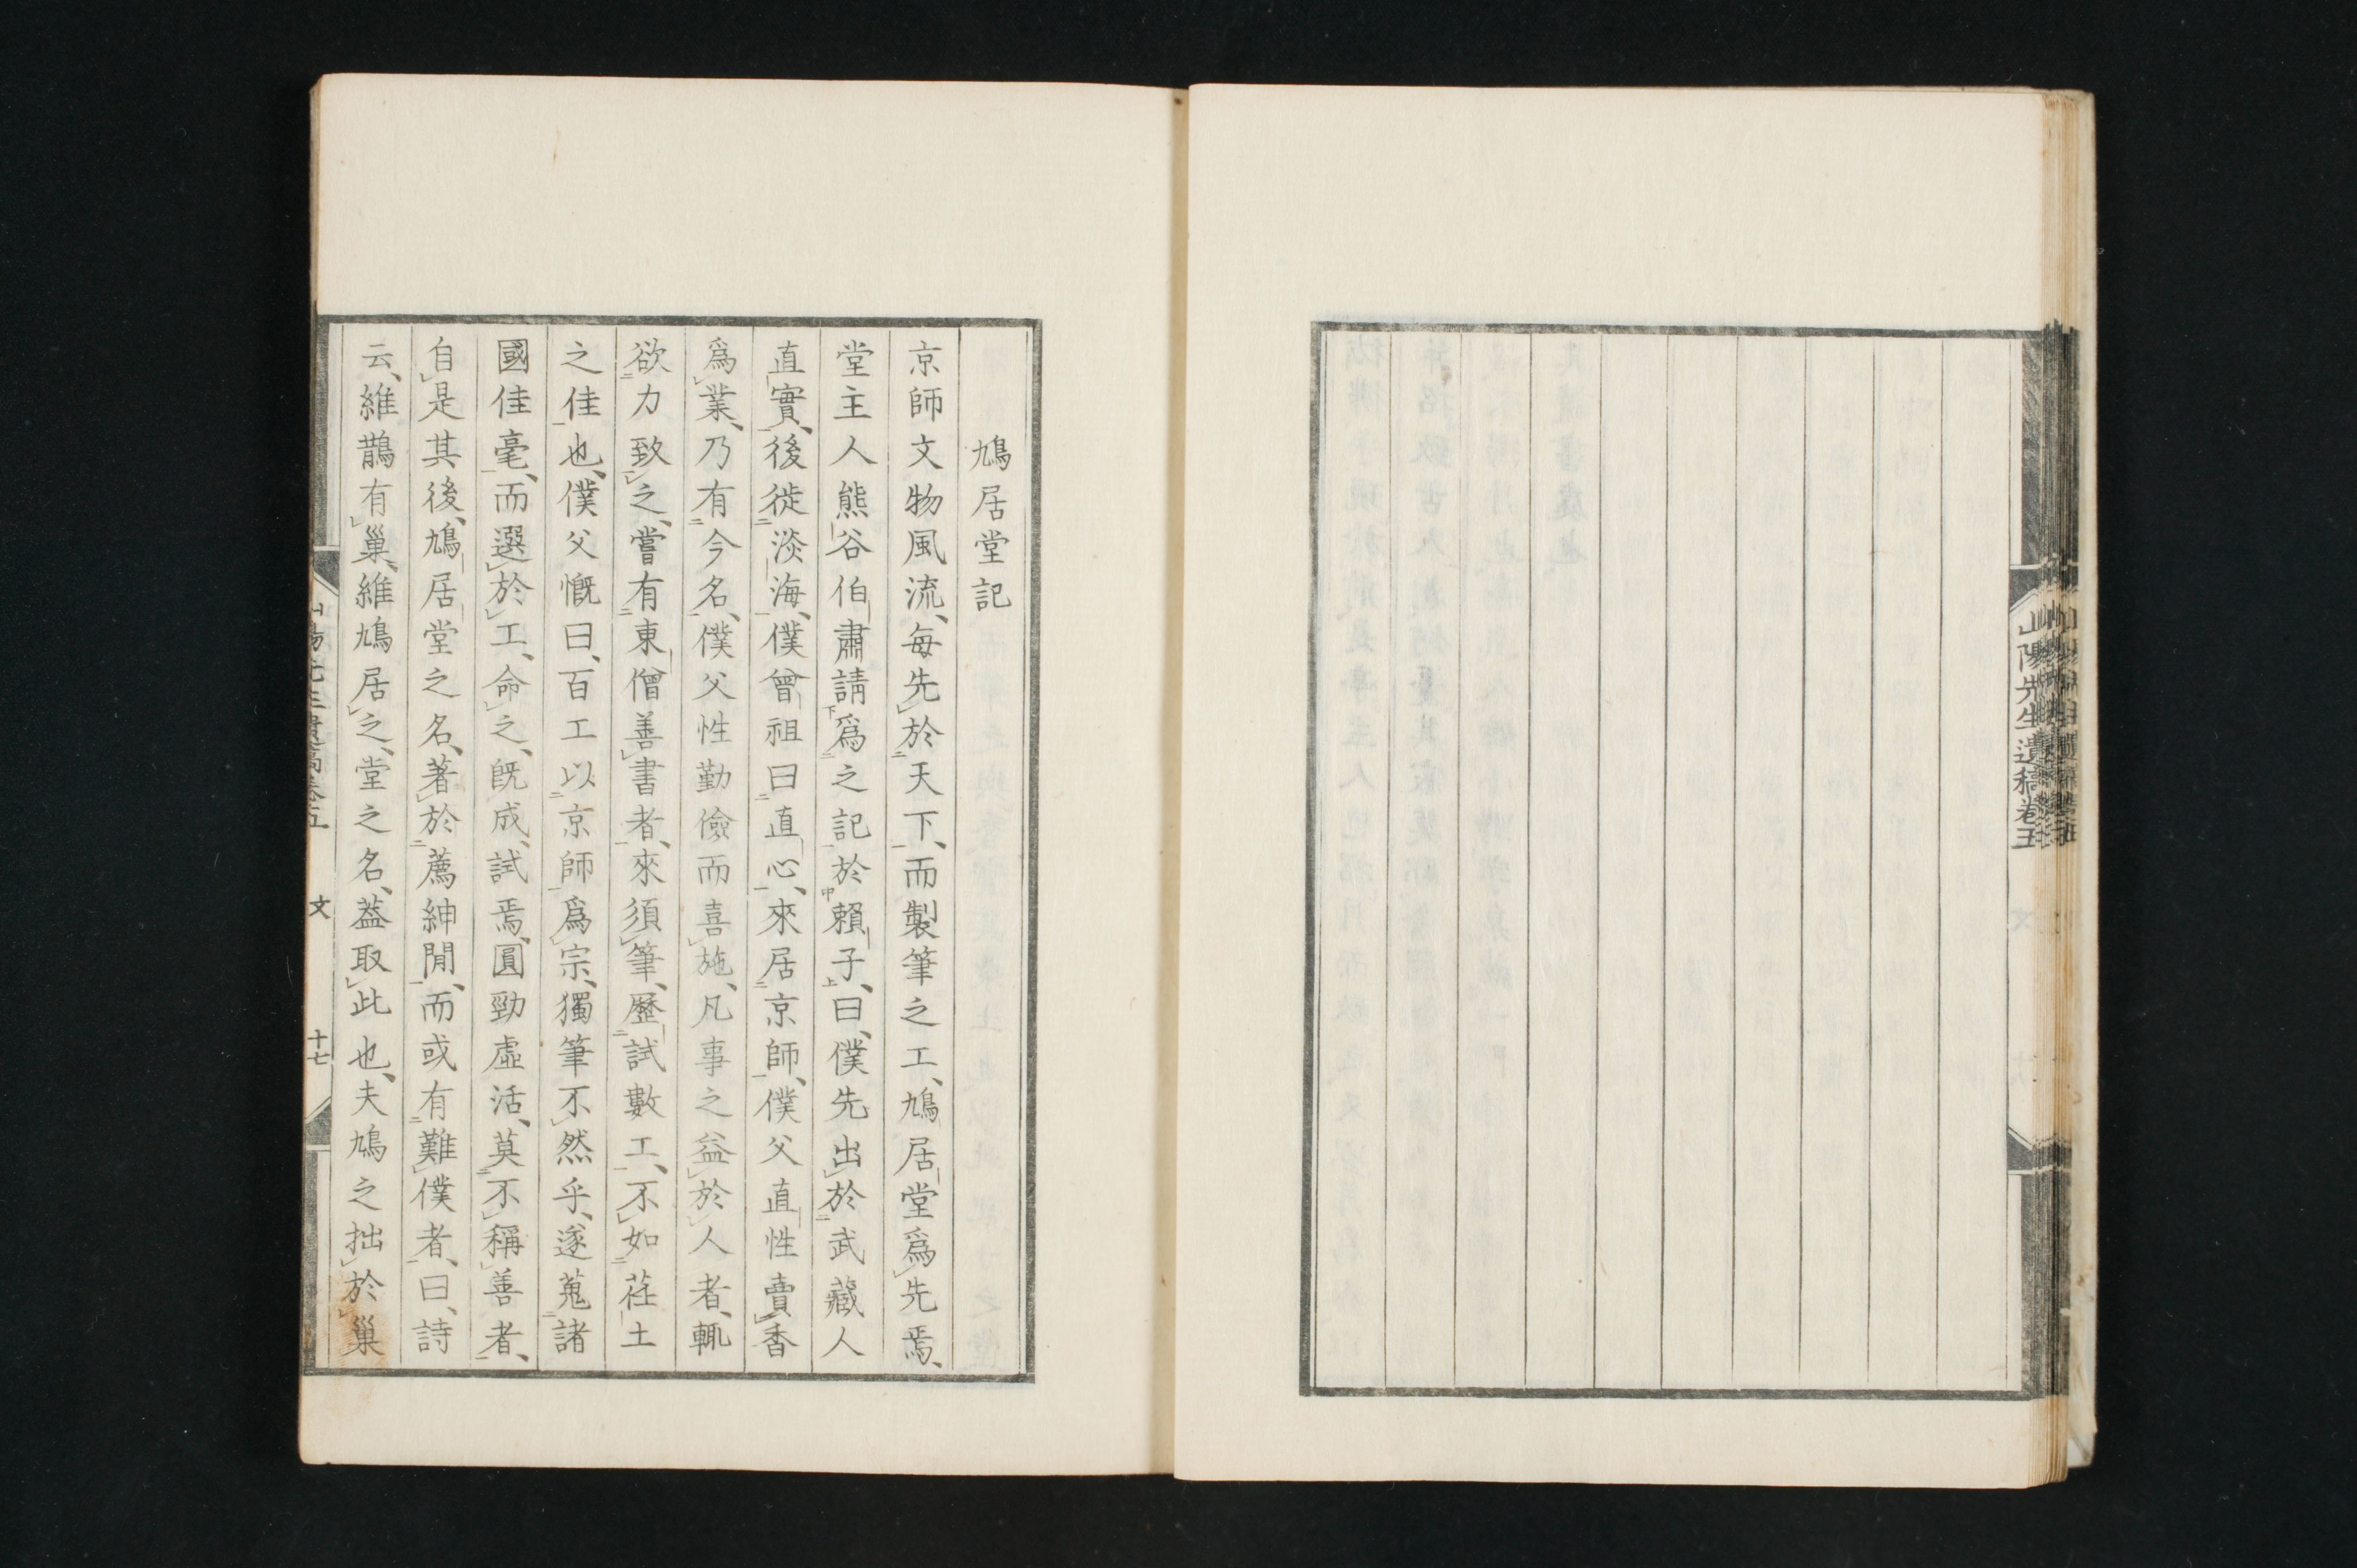 山陽先生遺稿卷五
鳩居堂記
京師文物風流、每先於天下、而製筆之工、鳩居堂爲先焉、
堂主人熊谷伯肅請爲之記於賴子、曰、僕先出於武藏人
直實、後徙淡海、僕曾祖曰直心、來居京師、僕父直性賣香
爲業、乃有今名、僕父性勤儉而喜施、凡事之益於人者、輒
欲力致之、嘗有東僧善書者、來須筆、歷試數工、不如荏土
之佳也、僕父慨曰、百工以京師爲宗、獨筆不然乎、遂蒐諸
國佳毫、而選於工、命之、既成、試焉、圓勁虛活、莫不稱善者、
自是其後、鳩居堂之名、著於薦紳間、而或有難僕者、曰、詩
云、維鵲有巢、維鳩居之、堂之名、葢取此也、夫鳩之拙於巢
山陽先生遺稿卷五 文 十七